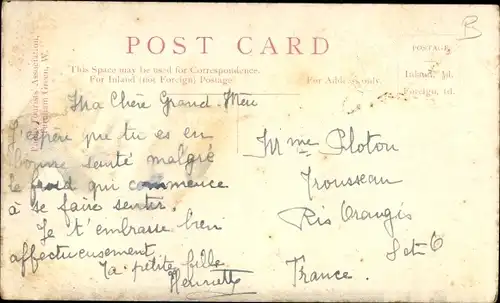 POST CARD
B
This Space may be used for Correspondence.
For Inland (not Foreign) Postage.
For Address only.
POSTAGE
Inland, ½d.
Foreign, 1d.
Tourists Association,
Green, W.
Ma Chère Grand-Meu
J'espère que tu es en
bonne santé malgré
le froid qui commence
à se faire sentir.
Je t'embrasse bien
affectueusement
Ta petite fille
Henriette
Mme Ploton
Trousseau
Ris Orangis
S et O
France.